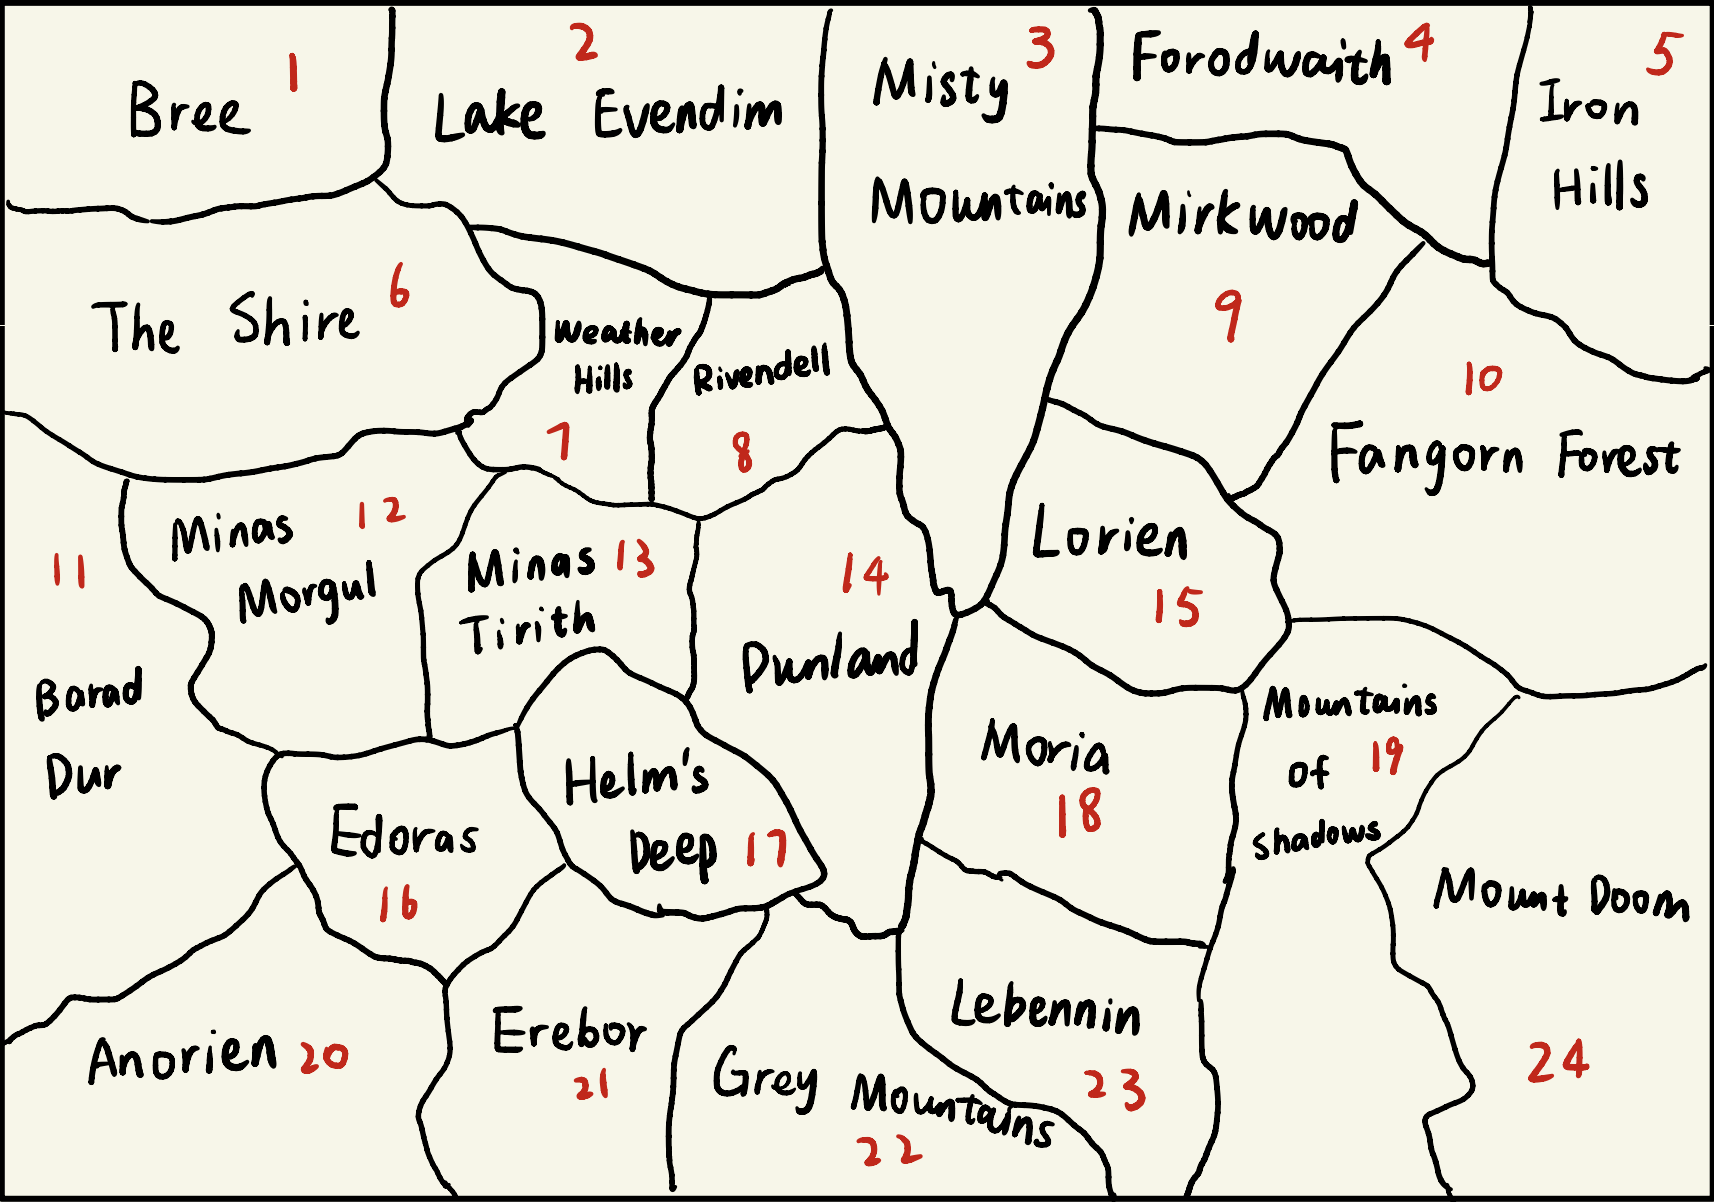 Bree 1
Lake Evendim 2
Misty 3
Mountains
Forodwaith 4
Iron 5
Hills
The Shire 6
Weather
Hills
7
Rivendell
8
Mirkwood
9
10
Fangorn Forest
11
Barad
Dur
Minas 12
Morgul
Minas 13
Tirith
14
Dunland
Lorien
15
Edoras
16
Helm's
Deep 17
Moria
18
Mountains
of 19
Shadows
Anorien 20
Erebor
21
Grey Mountains
22
Lebennin
23
Mount Doom
24